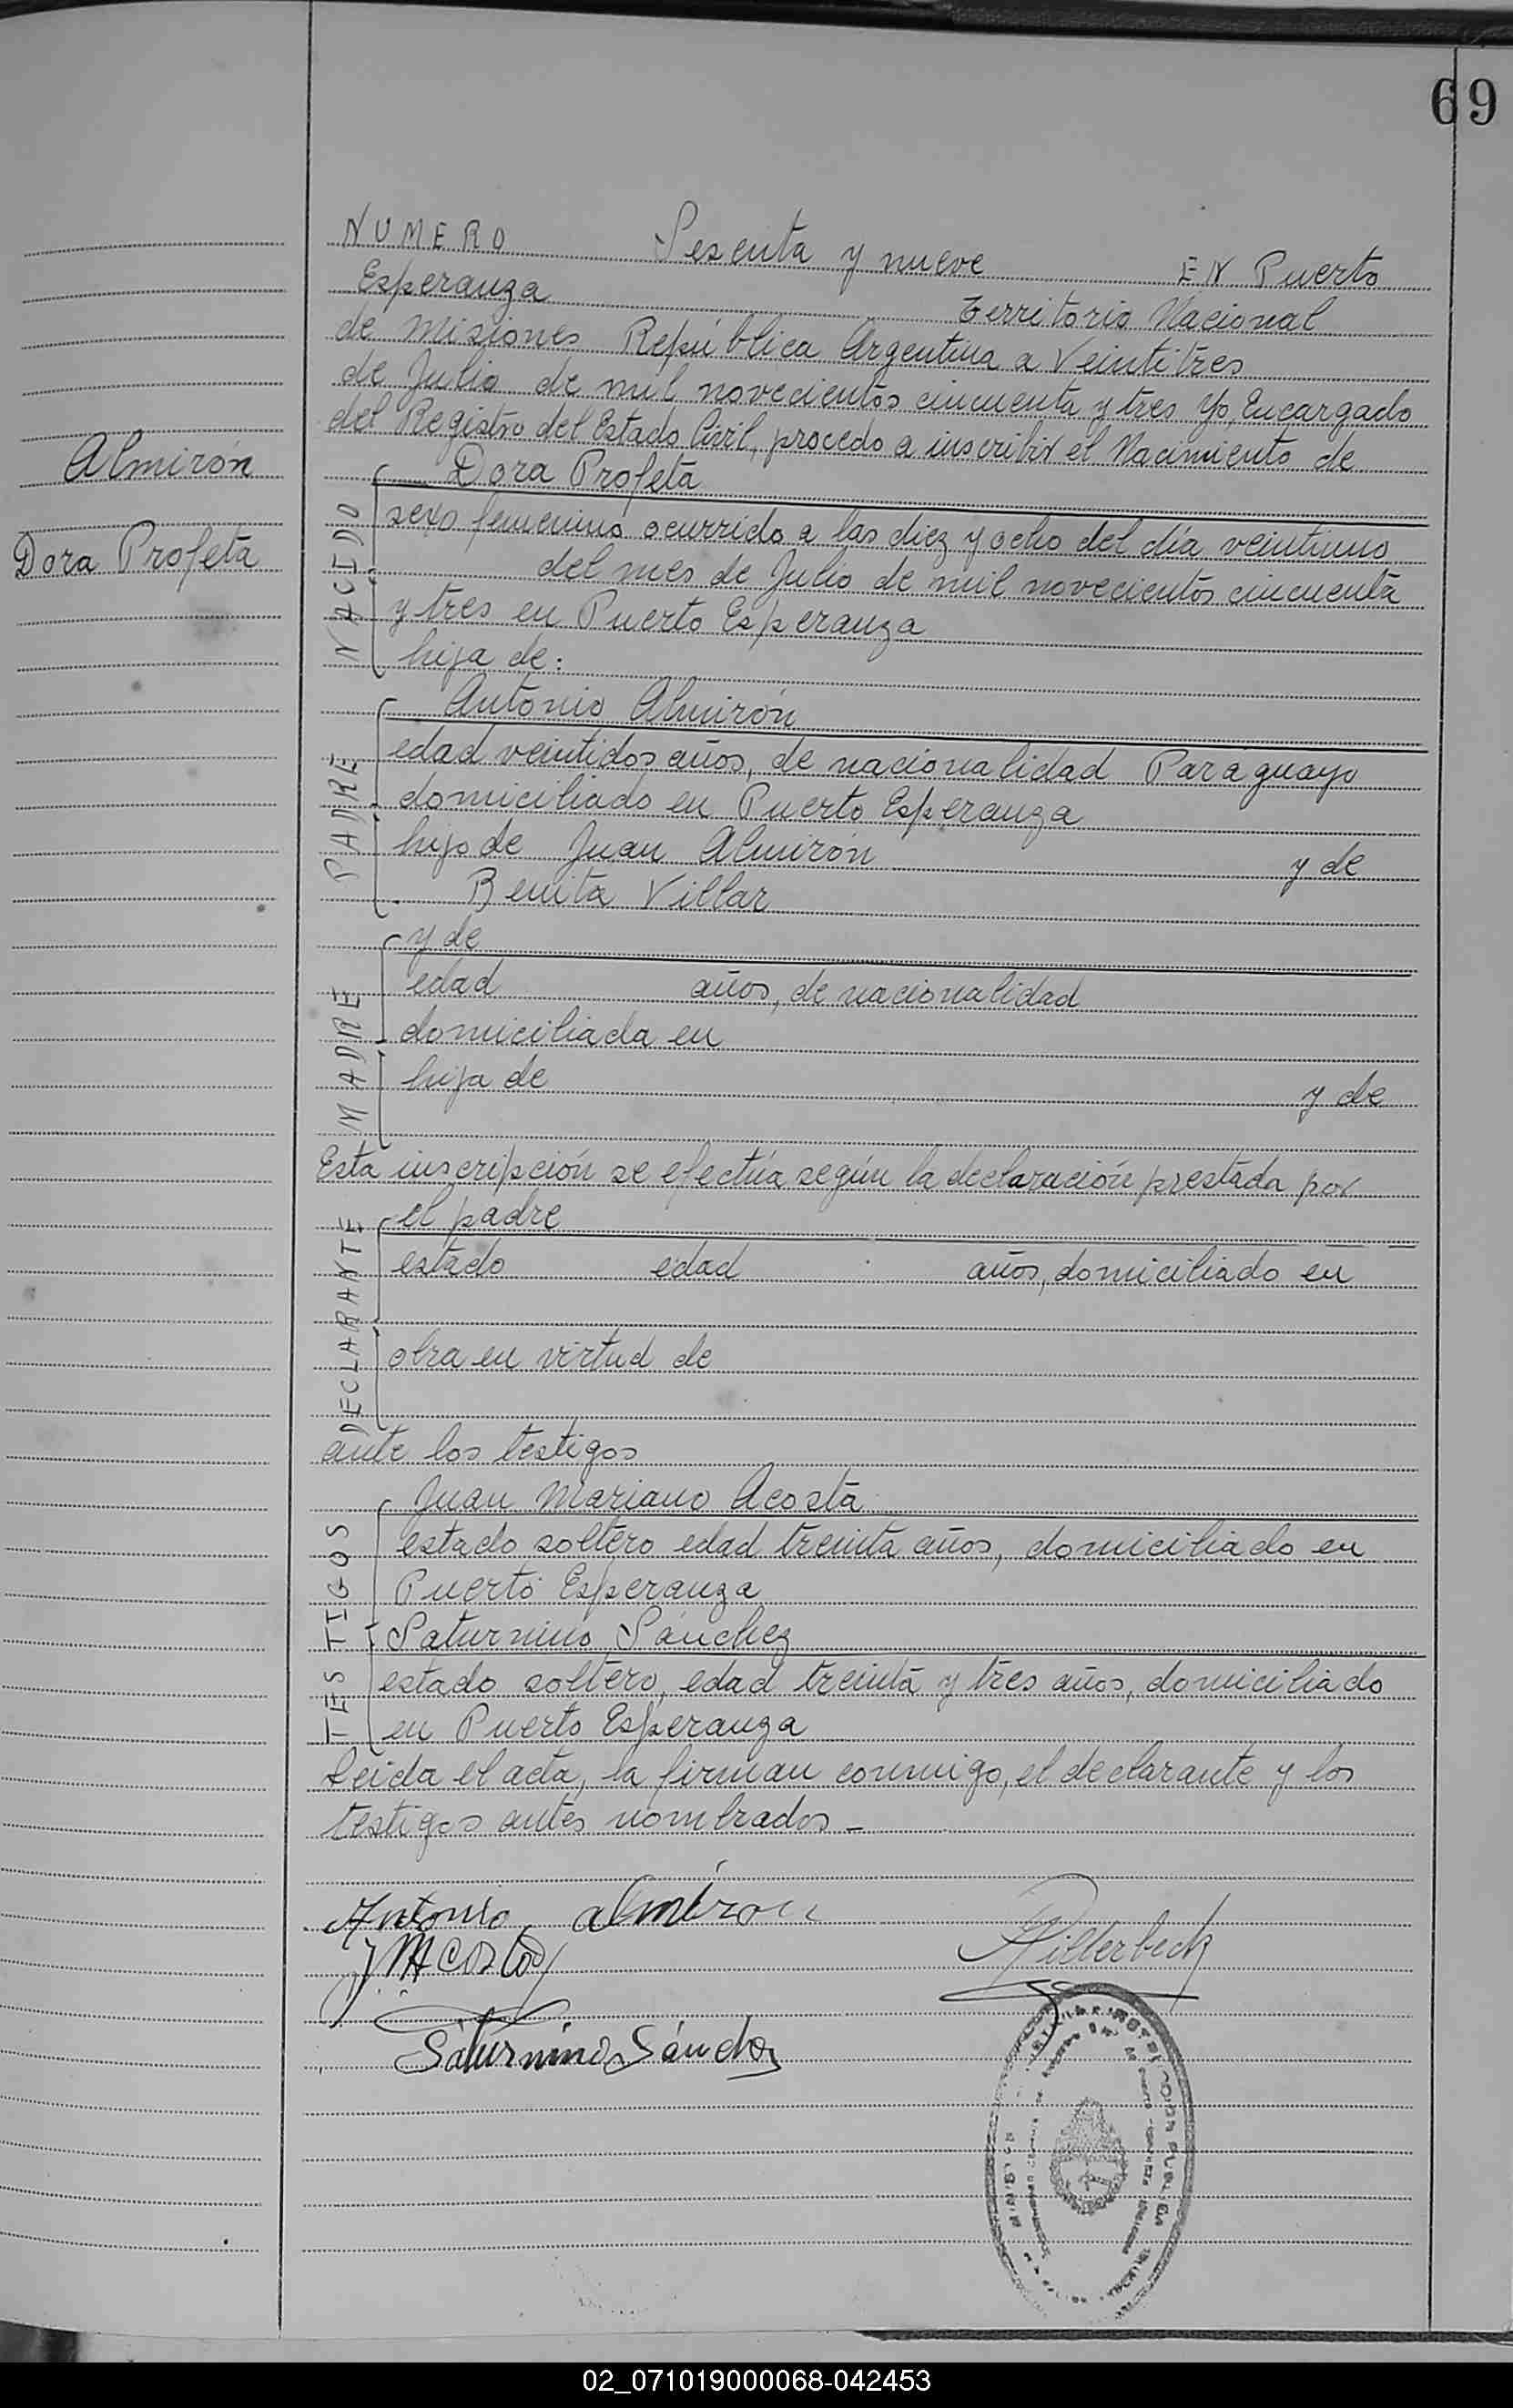 69
NUMERO Sesenta y nueve EN Puerto
Esperanza Territorio Nacional
de Misiones República Argentina a Veintitres
de Julio de mil novecientos cincuenta y tres Yo, Encargado
del Registro del Estado Civil, procedo a inscribir el Nacimiento de
Almirón
Dora Profeta
NACIDO
Dora Profeta
sexo femenino ocurrido a las diez y ocho del día veintiuno
del mes de Julio de mil novecientos cincuenta
y tres en Puerto Esperanza
hija de:
PADRE
Antonio Almirón
edad veintidos años, de nacionalidad Paraguayo
domiciliado en Puerto Esperanza
hijo de Juan Almirón y de
Benita Villar
MADRE
y de
edad años, de nacionalidad
domiciliada en
hija de y de
Esta inscripción se efectúa según la declaración prestada por
DECLARANTE
el padre
estado edad años, domiciliado en
obra en virtud de
ante los testigos
TESTIGOS
Juan Mariano Acosta
estado soltero edad treinta años, domiciliado en
Puerto Esperanza
Saturnino Sánchez
estado soltero, edad treinta y tres años, domiciliado
en Puerto Esperanza
Leida el acta, la firman conmigo, el declarante y los
testigos antes nombrados _
Antonio almiron
JMAcosta
Saturnino Sánchez
02_071019000068-042453